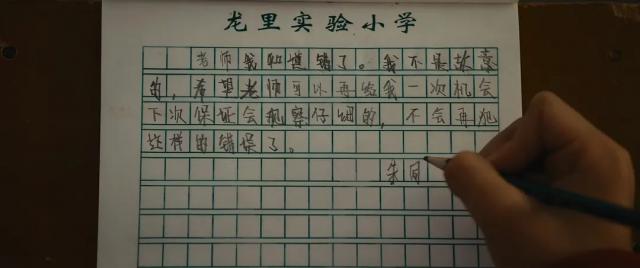 龙里实验小学
老师我知道错了。我不是故意
的，希望老师可以再给我一次机会
下次保证会观察仔细的，不会再犯
这样的错误了。
朱同